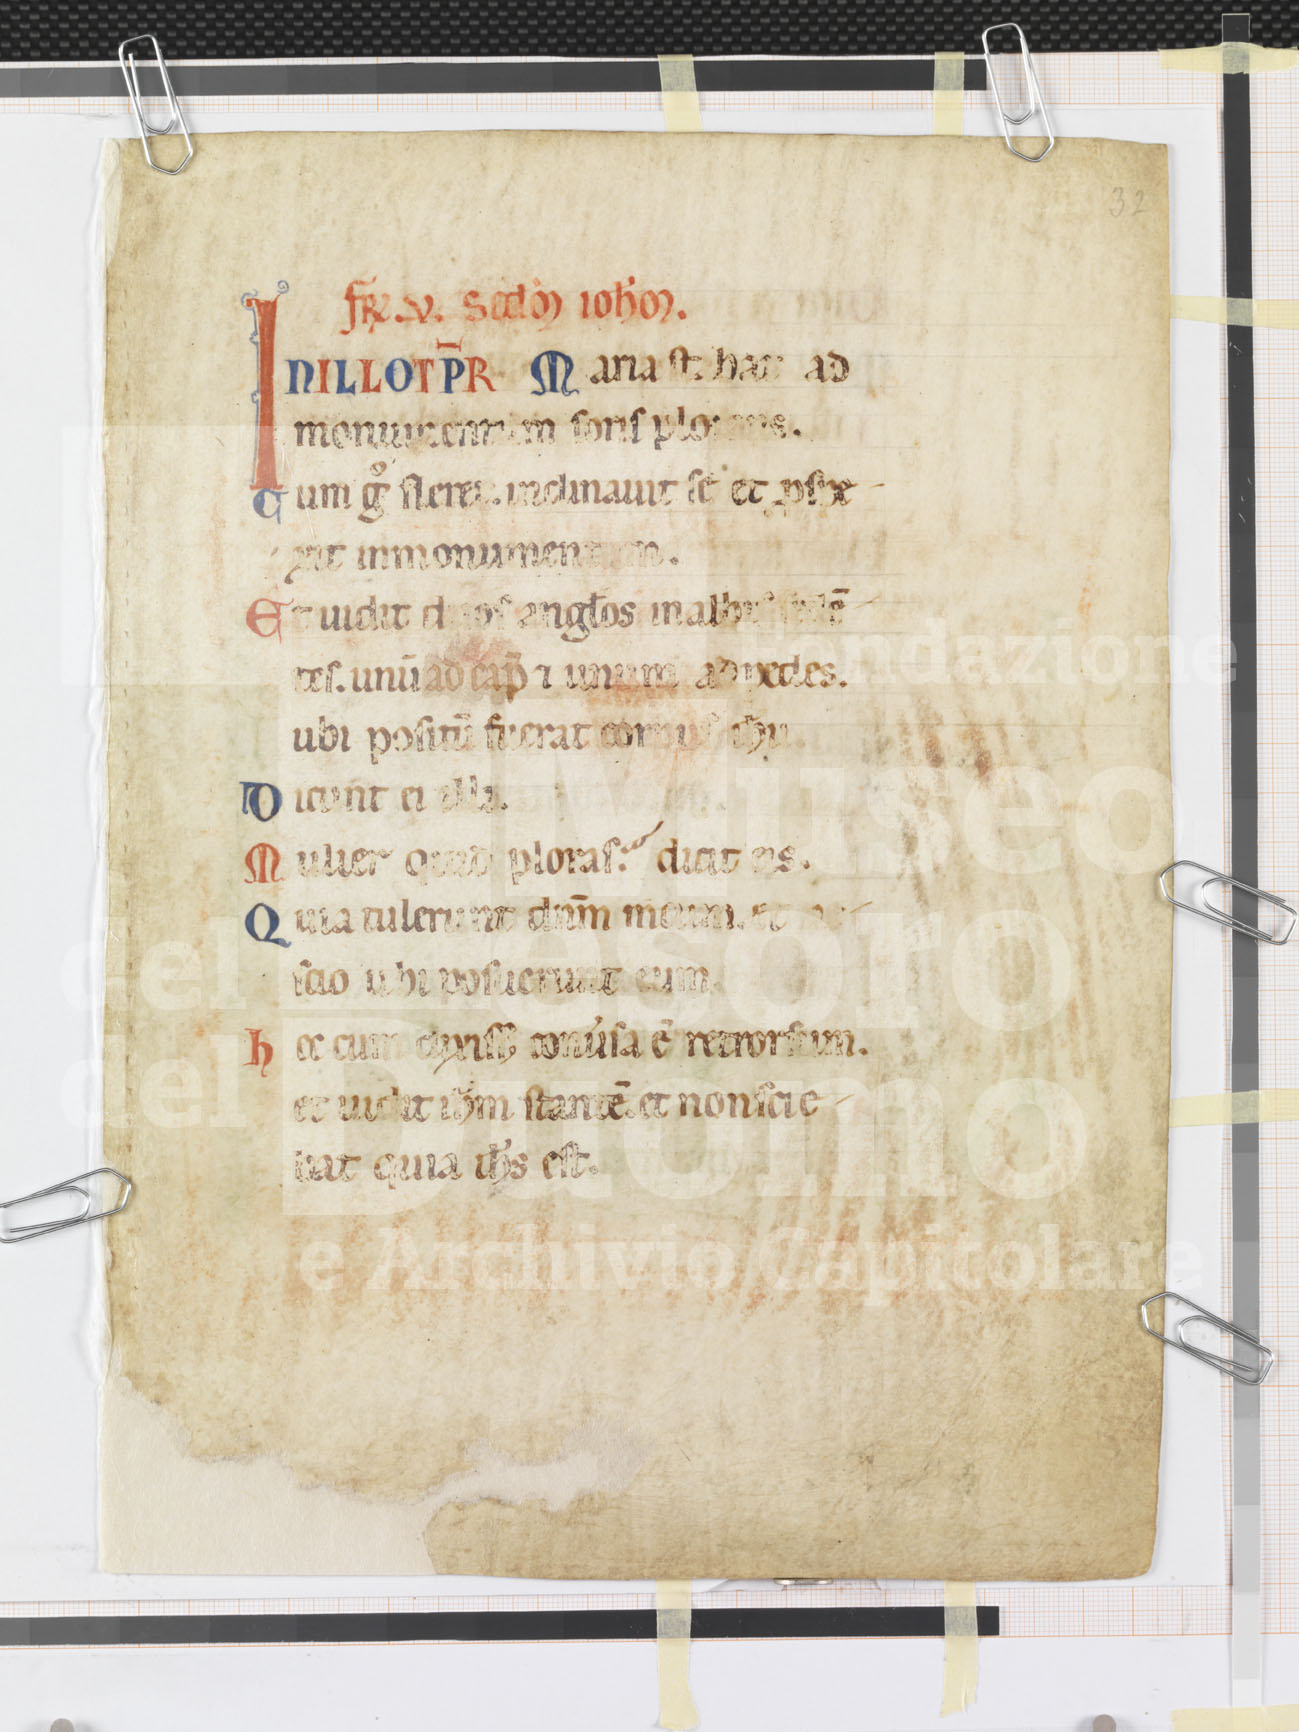 32
fr̃. v. Scd̃m ioħm.
INILLOT̃PR Maria st: bat ad
monumentum foris plorans.
Cum gͦ fleret. inclinauit se et ꝓspe
xit inmonumentum.
Et uidit duos anglos inalbis sedē
tes. unū ad cap̃ ⁊ unum ad pedes.
ubi positū fuerat corpus ihu.
Dicunt ei illi.
Mulier quid ploras? dicit eis.
Quia tulerunt dnm̄ meum. et ne
scio ubi posuerunt eum.
hec cum dixiss; conu'sa ē retrorsum.
et uidit ihm stantē. et nonscie
bat quia ihs est.
Fondazione
Museo
del Tesoro
del Duomo
e Archivio Capitolare